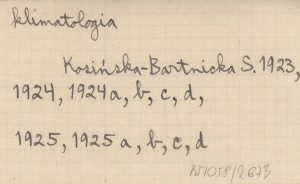 klimatologia
Kosińska-Bartnicka S. 1923,
1924, 1924a, b, c, d,
1925, 1925a, b, c, d